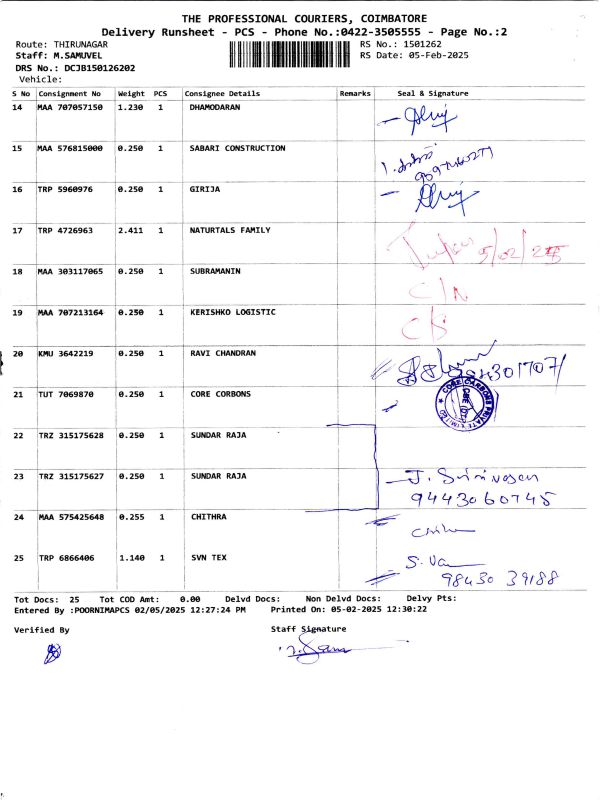 THE PROFESSIONAL COURIERS, COIMBATORE
Delivery Runsheet - PCS - Phone No.:0422-3505555 - Page No.:2
Route: THIRUNAGAR RS No.: 1501262
Staff: M.SAMUVEL RS Date: 05-Feb-2025
DRS No.: DCJB150126202
Vehicle:
S No Consignment No Weight PCS Consignee Details Remarks Seal & Signature
14 MAA 707057150 1.230 1 DHAMODARAN
15 MAA 576815000 0.250 1 SABARI CONSTRUCTION
16 TRP 5960976 0.250 1 GIRIJA
17 TRP 4726963 2.411 1 NATURTALS FAMILY 5/02/25
18 MAA 303117065 0.250 1 SUBRAMANIN
19 MAA 707213164 0.250 1 KERISHKO LOGISTIC
20 KMU 3642219 0.250 1 RAVI CHANDRAN
21 TUT 7069870 0.250 1 CORE CORBONS
CORE CARBONS PRIVATE LIMITED
22 TRZ 315175628 0.250 1 SUNDAR RAJA
23 TRZ 315175627 0.250 1 SUNDAR RAJA J. Srinivasan
9443060745
24 MAA 575425648 0.255 1 CHITHRA
25 TRP 6866406 1.140 1 SVN TEX S. Van
98430 39188
Tot Docs: 25 Tot COD Amt: 0.00 Delvd Docs: Non Delvd Docs: Delvy Pts:
Entered By :POORNIMAPCS 02/05/2025 12:27:24 PM Printed On: 05-02-2025 12:30:22
Verified By Staff Signature